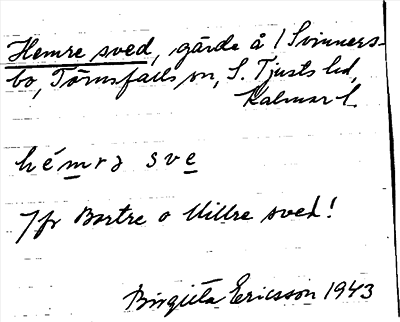 Hemre sved, gärde å 1 Svinners-
bo, Törnsfalls sn, S. Tjusts hd,
Kalmar l.
hémrə sve
Jfr Bortre o Millre sved!
Birgitta Ericsson 1943